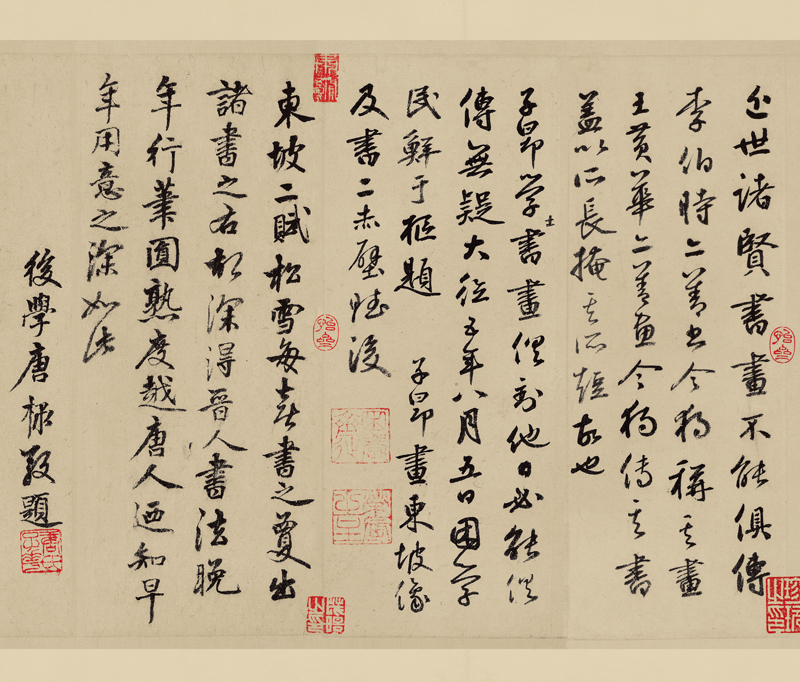 近世諸賢書畫不能俱傳
李伯時亦善書今獨稱其畫
王黃華亦善畫今獨傳其書
蓋以所長掩其所短故也
子昂學士書畫俱到他日必能俱
傳無疑大德五年八月五日困學
民鮮于樞題 子昂畫東坡像
及書二赤壁賦後
東坡二賦松雪每喜書之蔓出
諸書之右故深得晉人書法晚
年行筆圓熟度越唐人迺知早
年用意之深如此
後學唐棣敬題